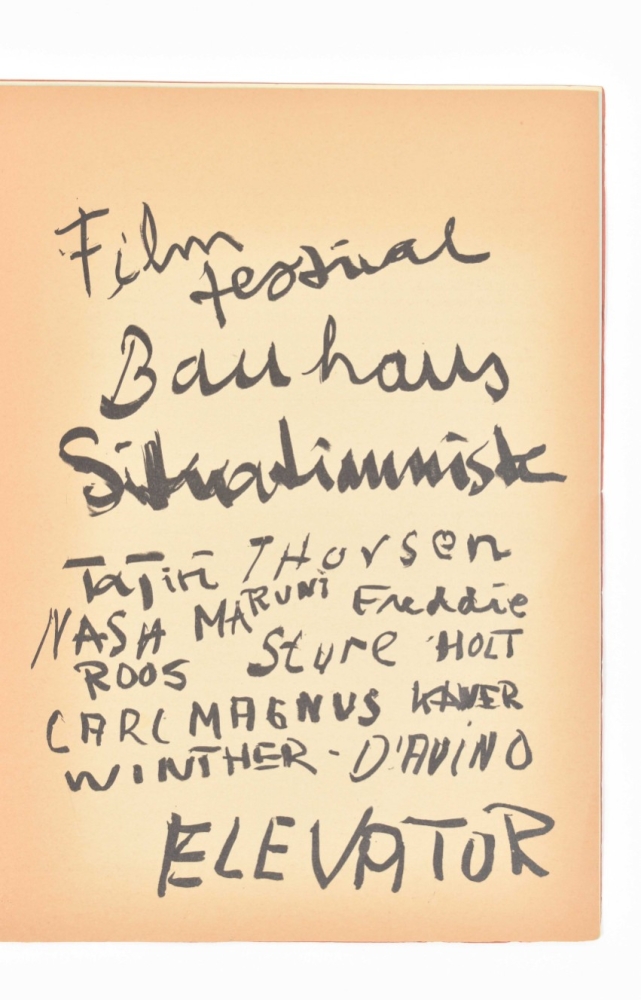 Film
festival
Bauhaus
Situationniste
Tajiri THorsen
NASH MARUNI Freddie
ROOS Sture HOLT
CARL MAGNUS
WINTHER - D'AVINO
ELEVATOR